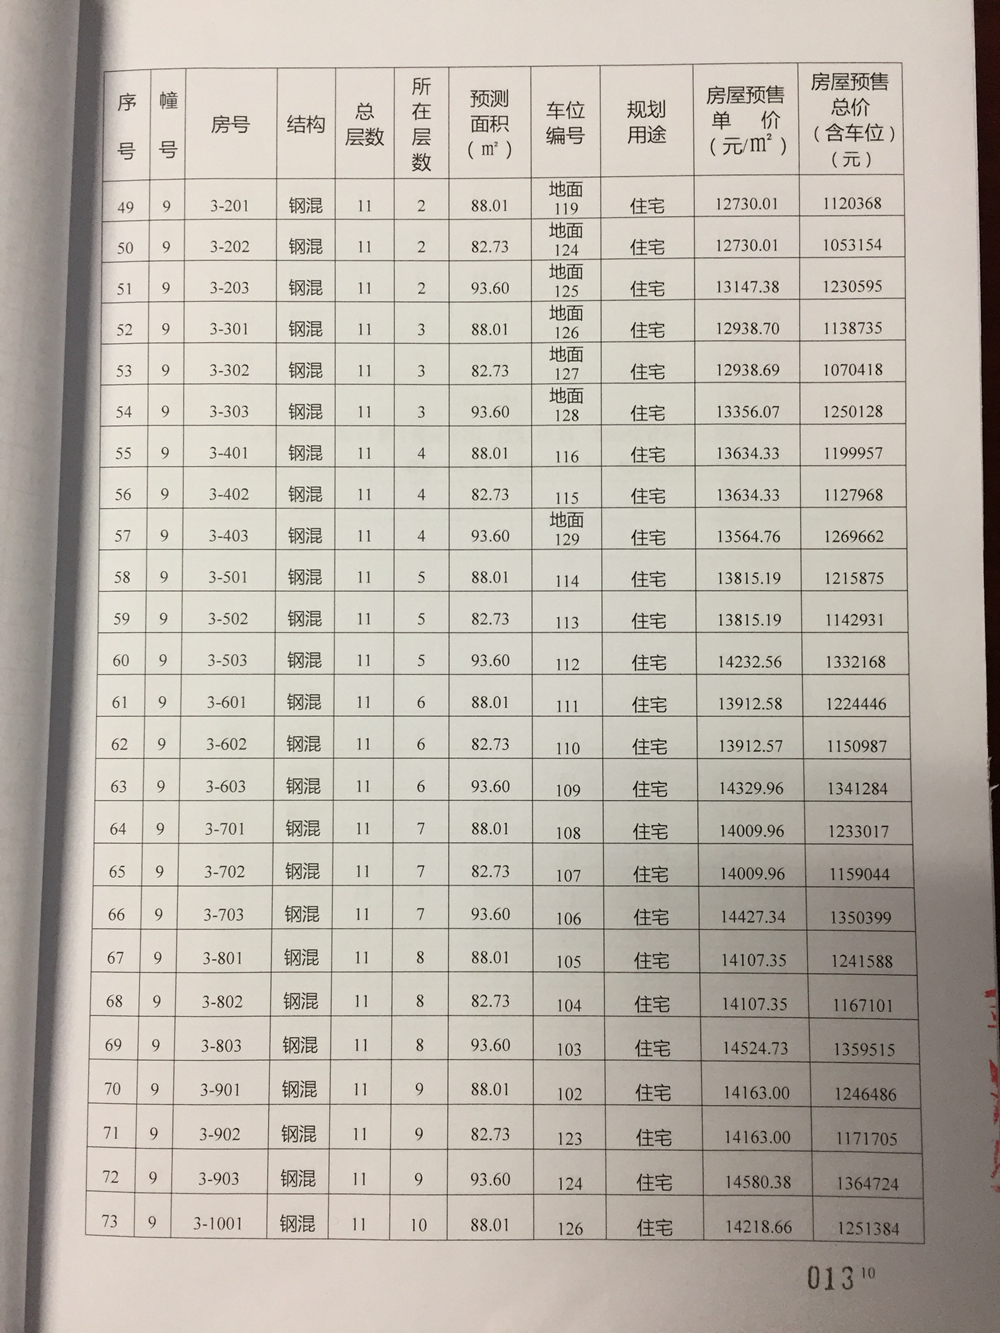 序号 幢号 房号 结构 总层数 所在层数 预测面积(㎡) 车位编号 规划用途 房屋预售单价(元/㎡) 房屋预售总价(含车位)(元)
49 9 3-201 钢混 11 2 88.01 地面119 住宅 12730.01 1120368
50 9 3-202 钢混 11 2 82.73 地面124 住宅 12730.01 1053154
51 9 3-203 钢混 11 2 93.60 地面125 住宅 13147.38 1230595
52 9 3-301 钢混 11 3 88.01 地面126 住宅 12938.70 1138735
53 9 3-302 钢混 11 3 82.73 地面127 住宅 12938.69 1070418
54 9 3-303 钢混 11 3 93.60 地面128 住宅 13356.07 1250128
55 9 3-401 钢混 11 4 88.01 116 住宅 13634.33 1199957
56 9 3-402 钢混 11 4 82.73 115 住宅 13634.33 1127968
57 9 3-403 钢混 11 4 93.60 地面129 住宅 13564.76 1269662
58 9 3-501 钢混 11 5 88.01 114 住宅 13815.19 1215875
59 9 3-502 钢混 11 5 82.73 113 住宅 13815.19 1142931
60 9 3-503 钢混 11 5 93.60 112 住宅 14232.56 1332168
61 9 3-601 钢混 11 6 88.01 111 住宅 13912.58 1224446
62 9 3-602 钢混 11 6 82.73 110 住宅 13912.57 1150987
63 9 3-603 钢混 11 6 93.60 109 住宅 14329.96 1341284
64 9 3-701 钢混 11 7 88.01 108 住宅 14009.96 1233017
65 9 3-702 钢混 11 7 82.73 107 住宅 14009.96 1159044
66 9 3-703 钢混 11 7 93.60 106 住宅 14427.34 1350399
67 9 3-801 钢混 11 8 88.01 105 住宅 14107.35 1241588
68 9 3-802 钢混 11 8 82.73 104 住宅 14107.35 1167101
69 9 3-803 钢混 11 8 93.60 103 住宅 14524.73 1359515
70 9 3-901 钢混 11 9 88.01 102 住宅 14163.00 1246486
71 9 3-902 钢混 11 9 82.73 123 住宅 14163.00 1171705
72 9 3-903 钢混 11 9 93.60 124 住宅 14580.38 1364724
73 9 3-1001 钢混 11 10 88.01 126 住宅 14218.66 1251384
013 10